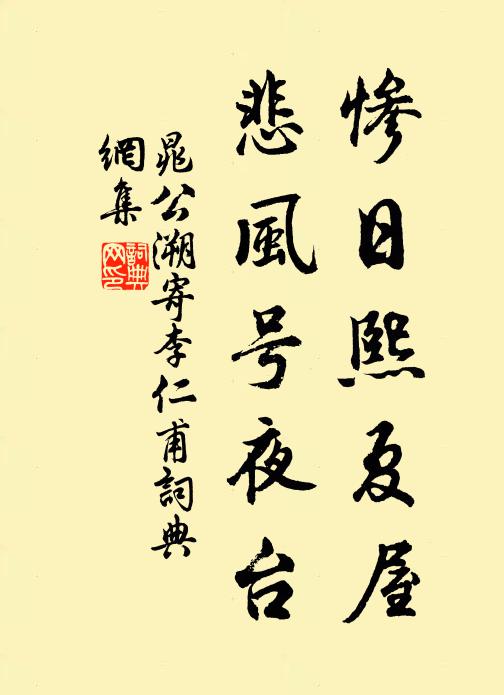 惨日熙夏屋
悲風号夜台
晁公溯寄李仁甫詞典
網集
詞典网印